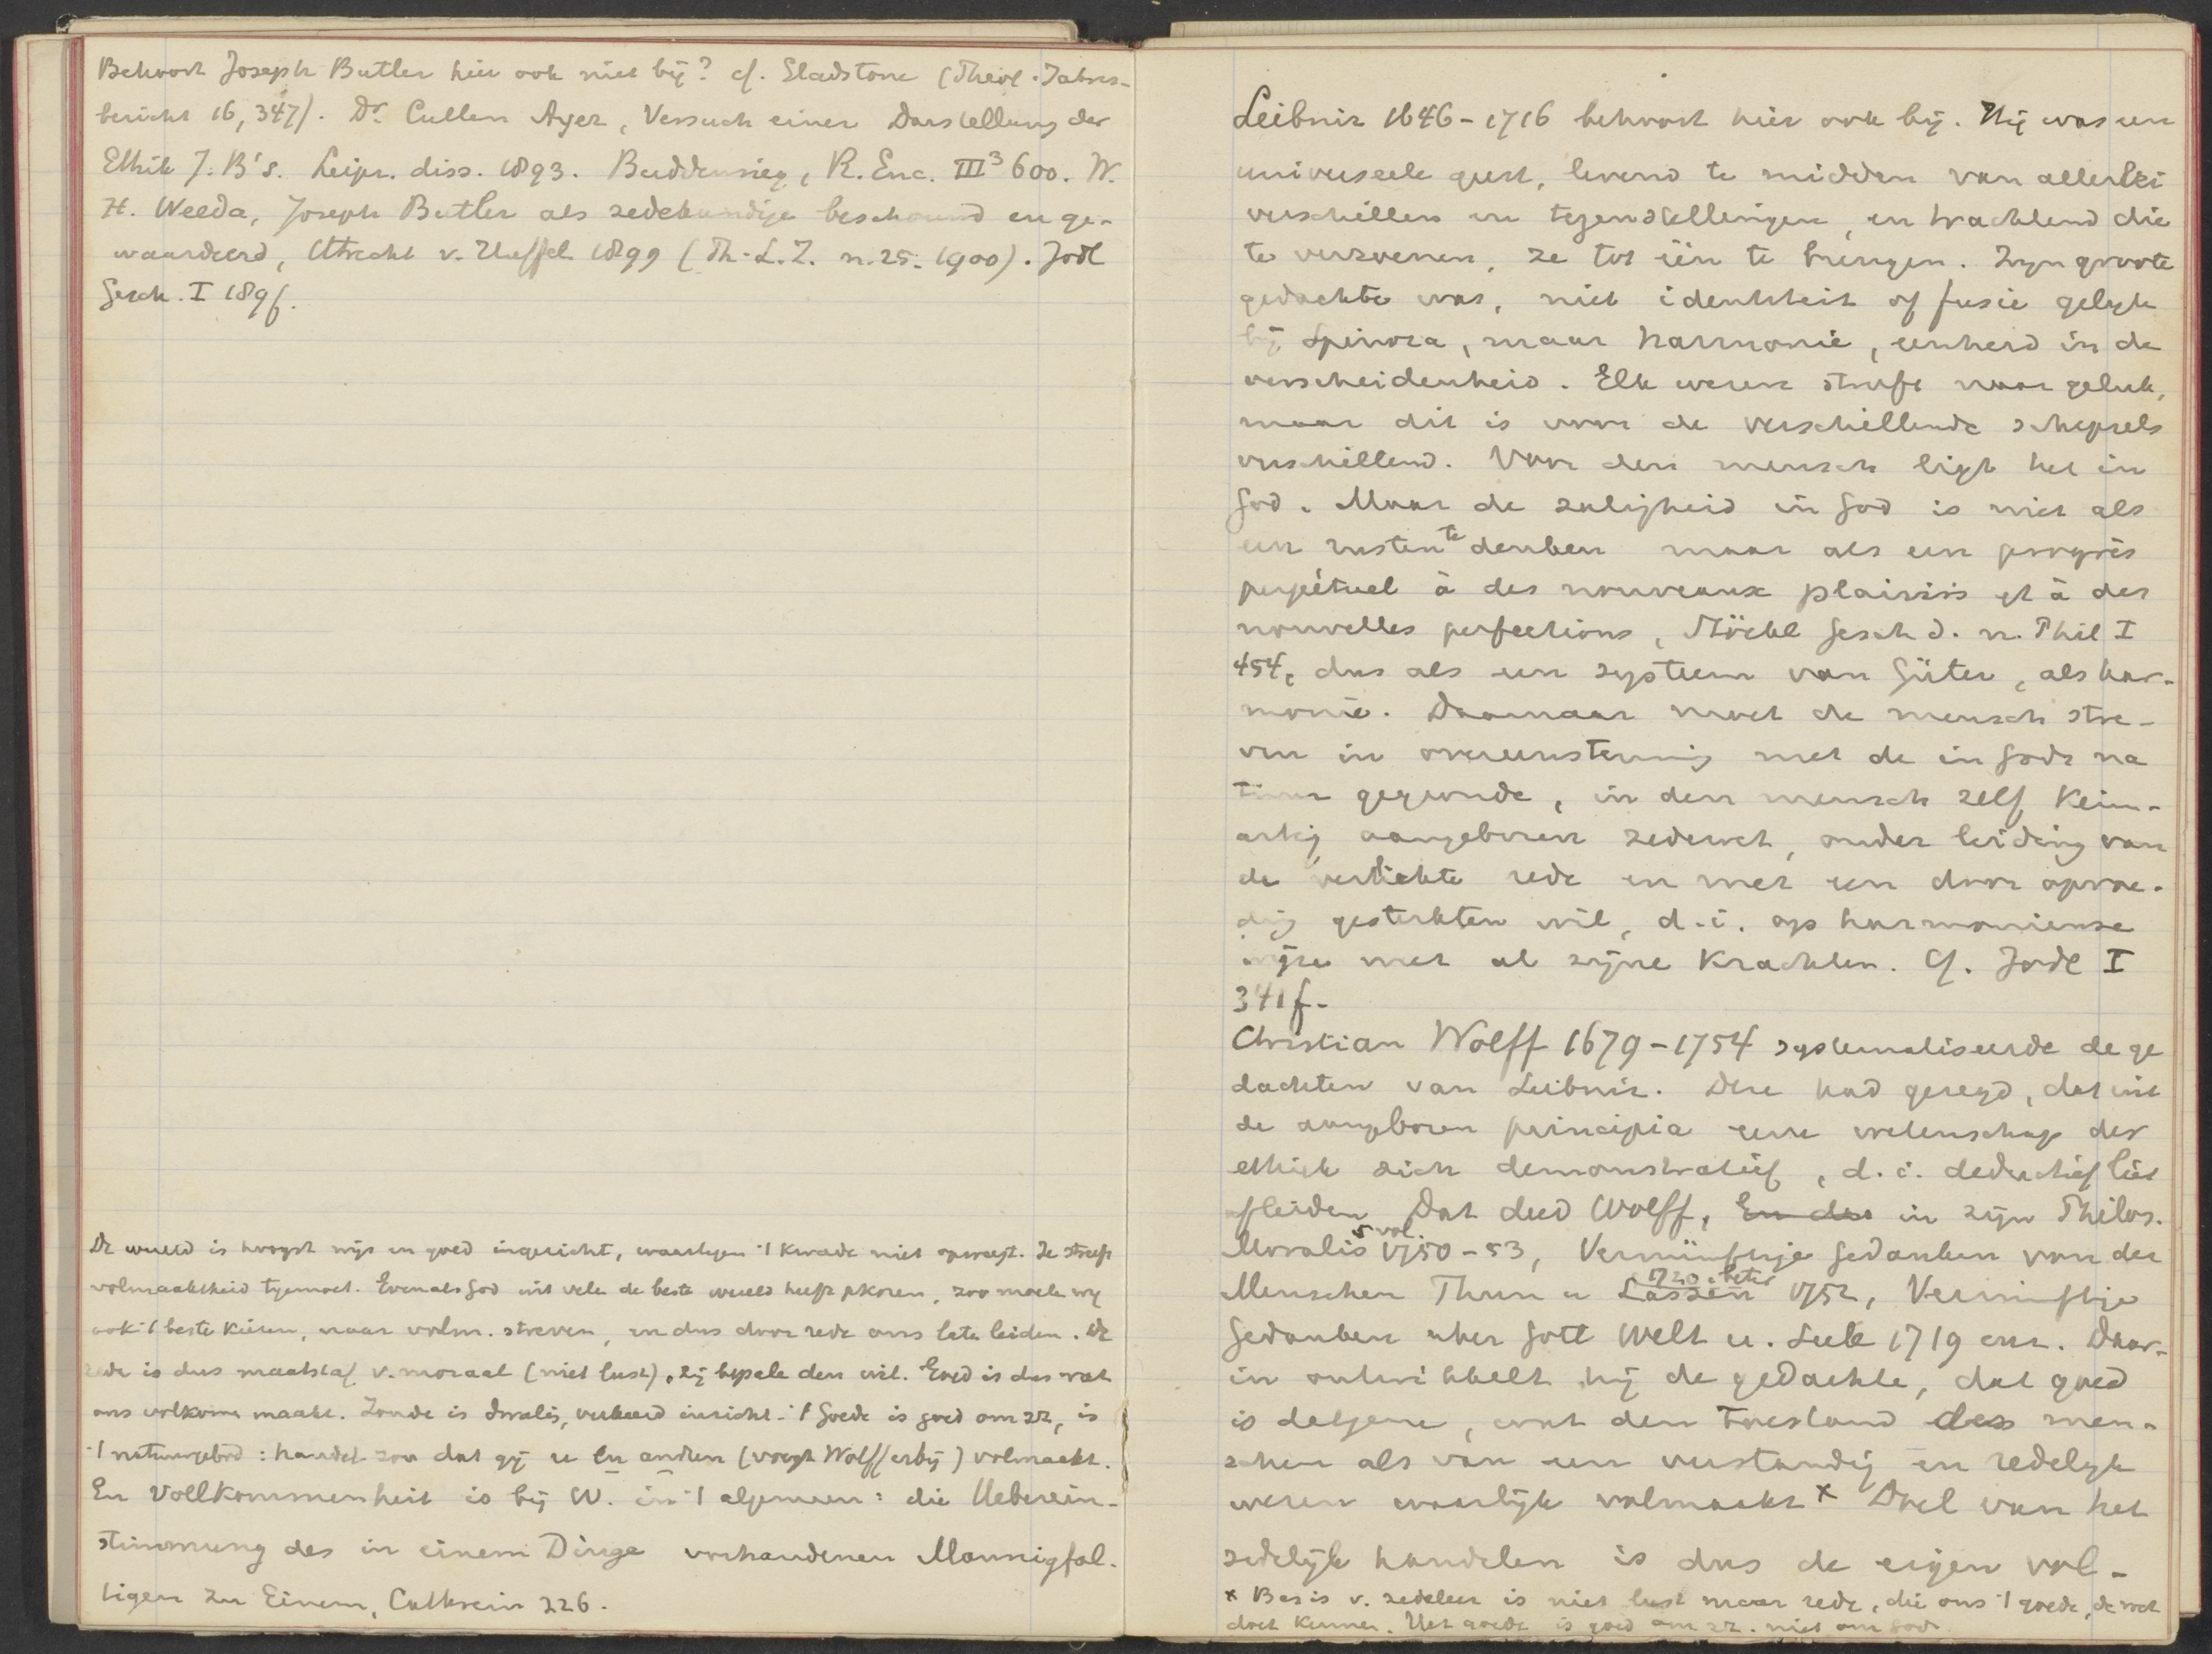 Behoort Joseph Butler hier ook niet bij? cf. Gladstone (Theol. Jahres-
bericht 16, 347). Dr. Cullen Ayer, Versuch einer Darstellung der
Ethik J. B's. Leipz. diss. 1893. Buddensieg, R. Enc. III³ 600. W.
H. Weeda, Joseph Butler als zedekundige beschouwd en ge-
waardeerd, Utrecht v. Huffel 1899 (Th. L. Z. n. 25. 1900). Jodl
Gesch. I 189f.
De wereld is hoogst wijs en goed ingericht, waartegen 't kwade niet opweegt. Ze streeft
volmaaktheid tegemoet. Evenals God uit vele de beste wereld heeft gekozen, zoo moeten wij
ook 't beste kiezen, naar volm. streven, en dus door rede ons laten leiden. De
rede is dus maatstaf v. moraal (niet lust), zij bepale den wil. Goed is dus wat
ons volkomen maakt. Zonde is dwaling, verkeerd inzicht. 't Goede is goed om zz, is
't natuurgebod: handel zoo dat gij u en anderen (voegt Wolff erbij) volmaakt.
En Vollkommenheit is bij W. in 't algemeen: die Ueberein-
stimmung des in einem Dinge vorhandenen Mannigfal-
tigen zu Einem, Cathrein 226.
Leibniz 1646-1716 behoort hier ook bij. Hij was een
universeele geest, levend te midden van allerlei
verschillen en tegenstellingen, en trachtend die
te verzoenen, ze tot één te brengen. Zijn groote
gedachte was, niet identiteit of fusie gelijk
bij Spinoza, maar harmonie, eenheid in de
verscheidenheid. Elk wezen streeft naar geluk,
maar dit is voor de verschillende schepsels
verschillend. Voor den mensch ligt het in
God. Maar de zaligheid in God is niet als
een rusten te denken maar als een progrès
perpétuel à des nouveaux plaisirs et à des
nouvelles perfections, Stöckl Gesch d. n. Phil I
454, dus als een systeem van Güter, als har-
monie. Daarnaar moet de mensch stre-
ven in overeenstemming met de in Gods na
tuur gegronde, in den mensch zelf keim-
artig aangeboren zedewet, onder leiding van
de verlichte rede en met een door opvoe-
ding gesterkten wil, d.i. op harmonieuse
wijze met al zijne krachten. Cf. Jodl I
341f.
Christian Wolff 1679-1754 systematiseerde de ge
dachten van Leibniz. Deze had gezegd, dat uit
de aangeboren principia eene wetenschap der
ethiek zich demonstratief, d.i. deductief liet
afleiden. Dat deed Wolff, En dus in zijn Philos.
Moralis 5 vol. 1750-53, Vernünftige Gedanken von der
Menschen Thun u Lassen 1720. beter 1752, Vernünftige
Gedanken uber Gott Welt u. Seele 1719 enz. Daar-
in ontwikkelt hij de gedachte, dat goed
is datgene, wat den toestand des men-
schen als van een verstandig en redelijk
wezen waarlijk volmaakt x Doel van het
zedelijk handelen is dus de eigen vol-
x Basis v. zedeleer is niet lust maar rede, die ons 't goede, de wet
doet kennen. Het goede is goed om zz. niet om God